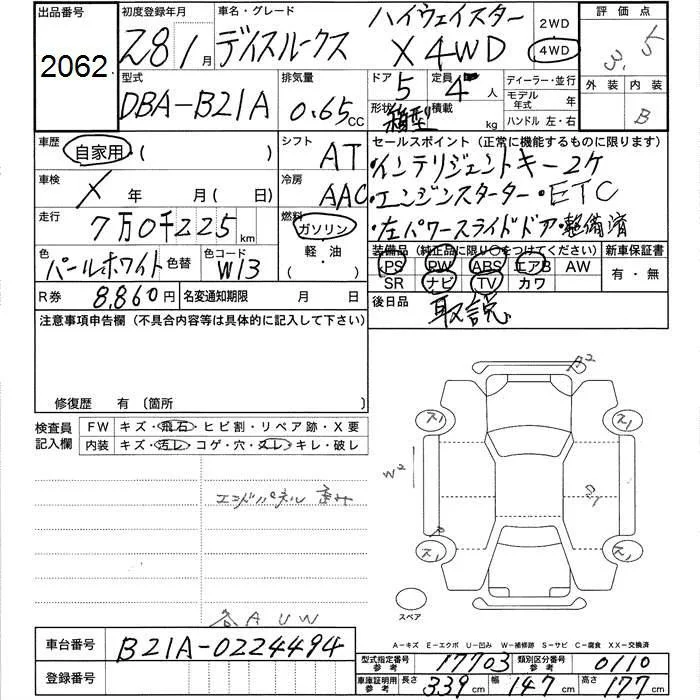 出品番号 2062
初度登録年月 28年 1月
車名・グレード デイズルークス ハイウェイスター X 4WD
2WD
4WD
評価点 3.5
外装 内装 B
型式 DBA-B21A
排気量 0.65 CC
ドア 5 定員 4人
形状 箱型 積載 kg
ディーラー・並行
モデル年式 年
ハンドル 左・右
車歴 自家用・( )
シフト AT
車検 X 年 月(日)
冷房 AAC
走行 7万0千225 km
燃料 ガソリン 軽・油 ( )
色 パールホワイト 色替 色コード W13
R券 8,860円 名変通知期限 月 日
セールスポイント(正常に機能するものに限ります)
・インテリジェントキー2ケ
・エンジンスターター・ETC
・左パワースライドドア・整備済
装備品(純正品に限り○をつけてください) 新車保証書
PS PW ABS エアB AW 有・無
SR ナビ TV カワ
後日品 取説
注意事項申告欄(不具合内容等は具体的に記入して下さい)
修復歴 有(箇所
検査員記入欄 FW キズ・飛石・ヒビ割・リペア跡・X要
内装 キズ・汚レ・コゲ・穴・スレ・キレ・破レ
エンドパネル 歪み
各AUW
A2
ス1 ス1
W2
ス1 ス1
スペア
A-キズ E-エクボ U-凹み W-補修跡 S-サビ C-腐食 XX-交換済
車台番号 B21A-0224494
登録番号
型式指定番号 参考 17703 類別区分番号 参考 0110
車庫証明用 参考 長さ 339cm 幅 147cm 高さ 177cm